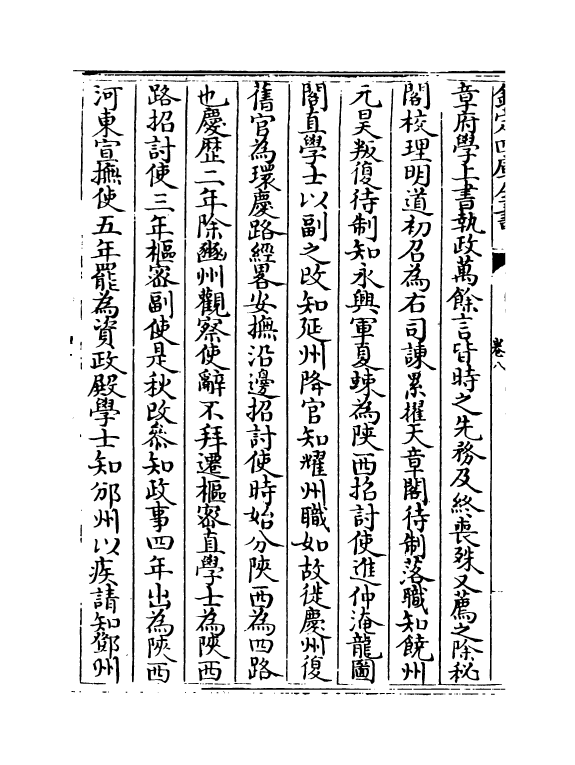 欽定四庫全書
卷八
章府學上書執政萬餘言皆時之先務及終喪殊又薦之除秘
閣校理明道初召為右司諫累擢天章閣待制落職知饒州
元昊叛復待制知永興軍夏竦為陝西招討使進仲淹龍圖
閣直學士以副之改知延州降官知耀州職如故徙慶州復
舊官為環慶路經畧安撫沿邊招討使時始分陝西為四路
也慶歴二年除豳州觀察使辭不拜遷樞密直學士為陝西
路招討使三年樞密副使是秋改叅知政事四年出為陝西
河東宣撫使五年罷為資政殿學士知邠州以疾請知鄧州